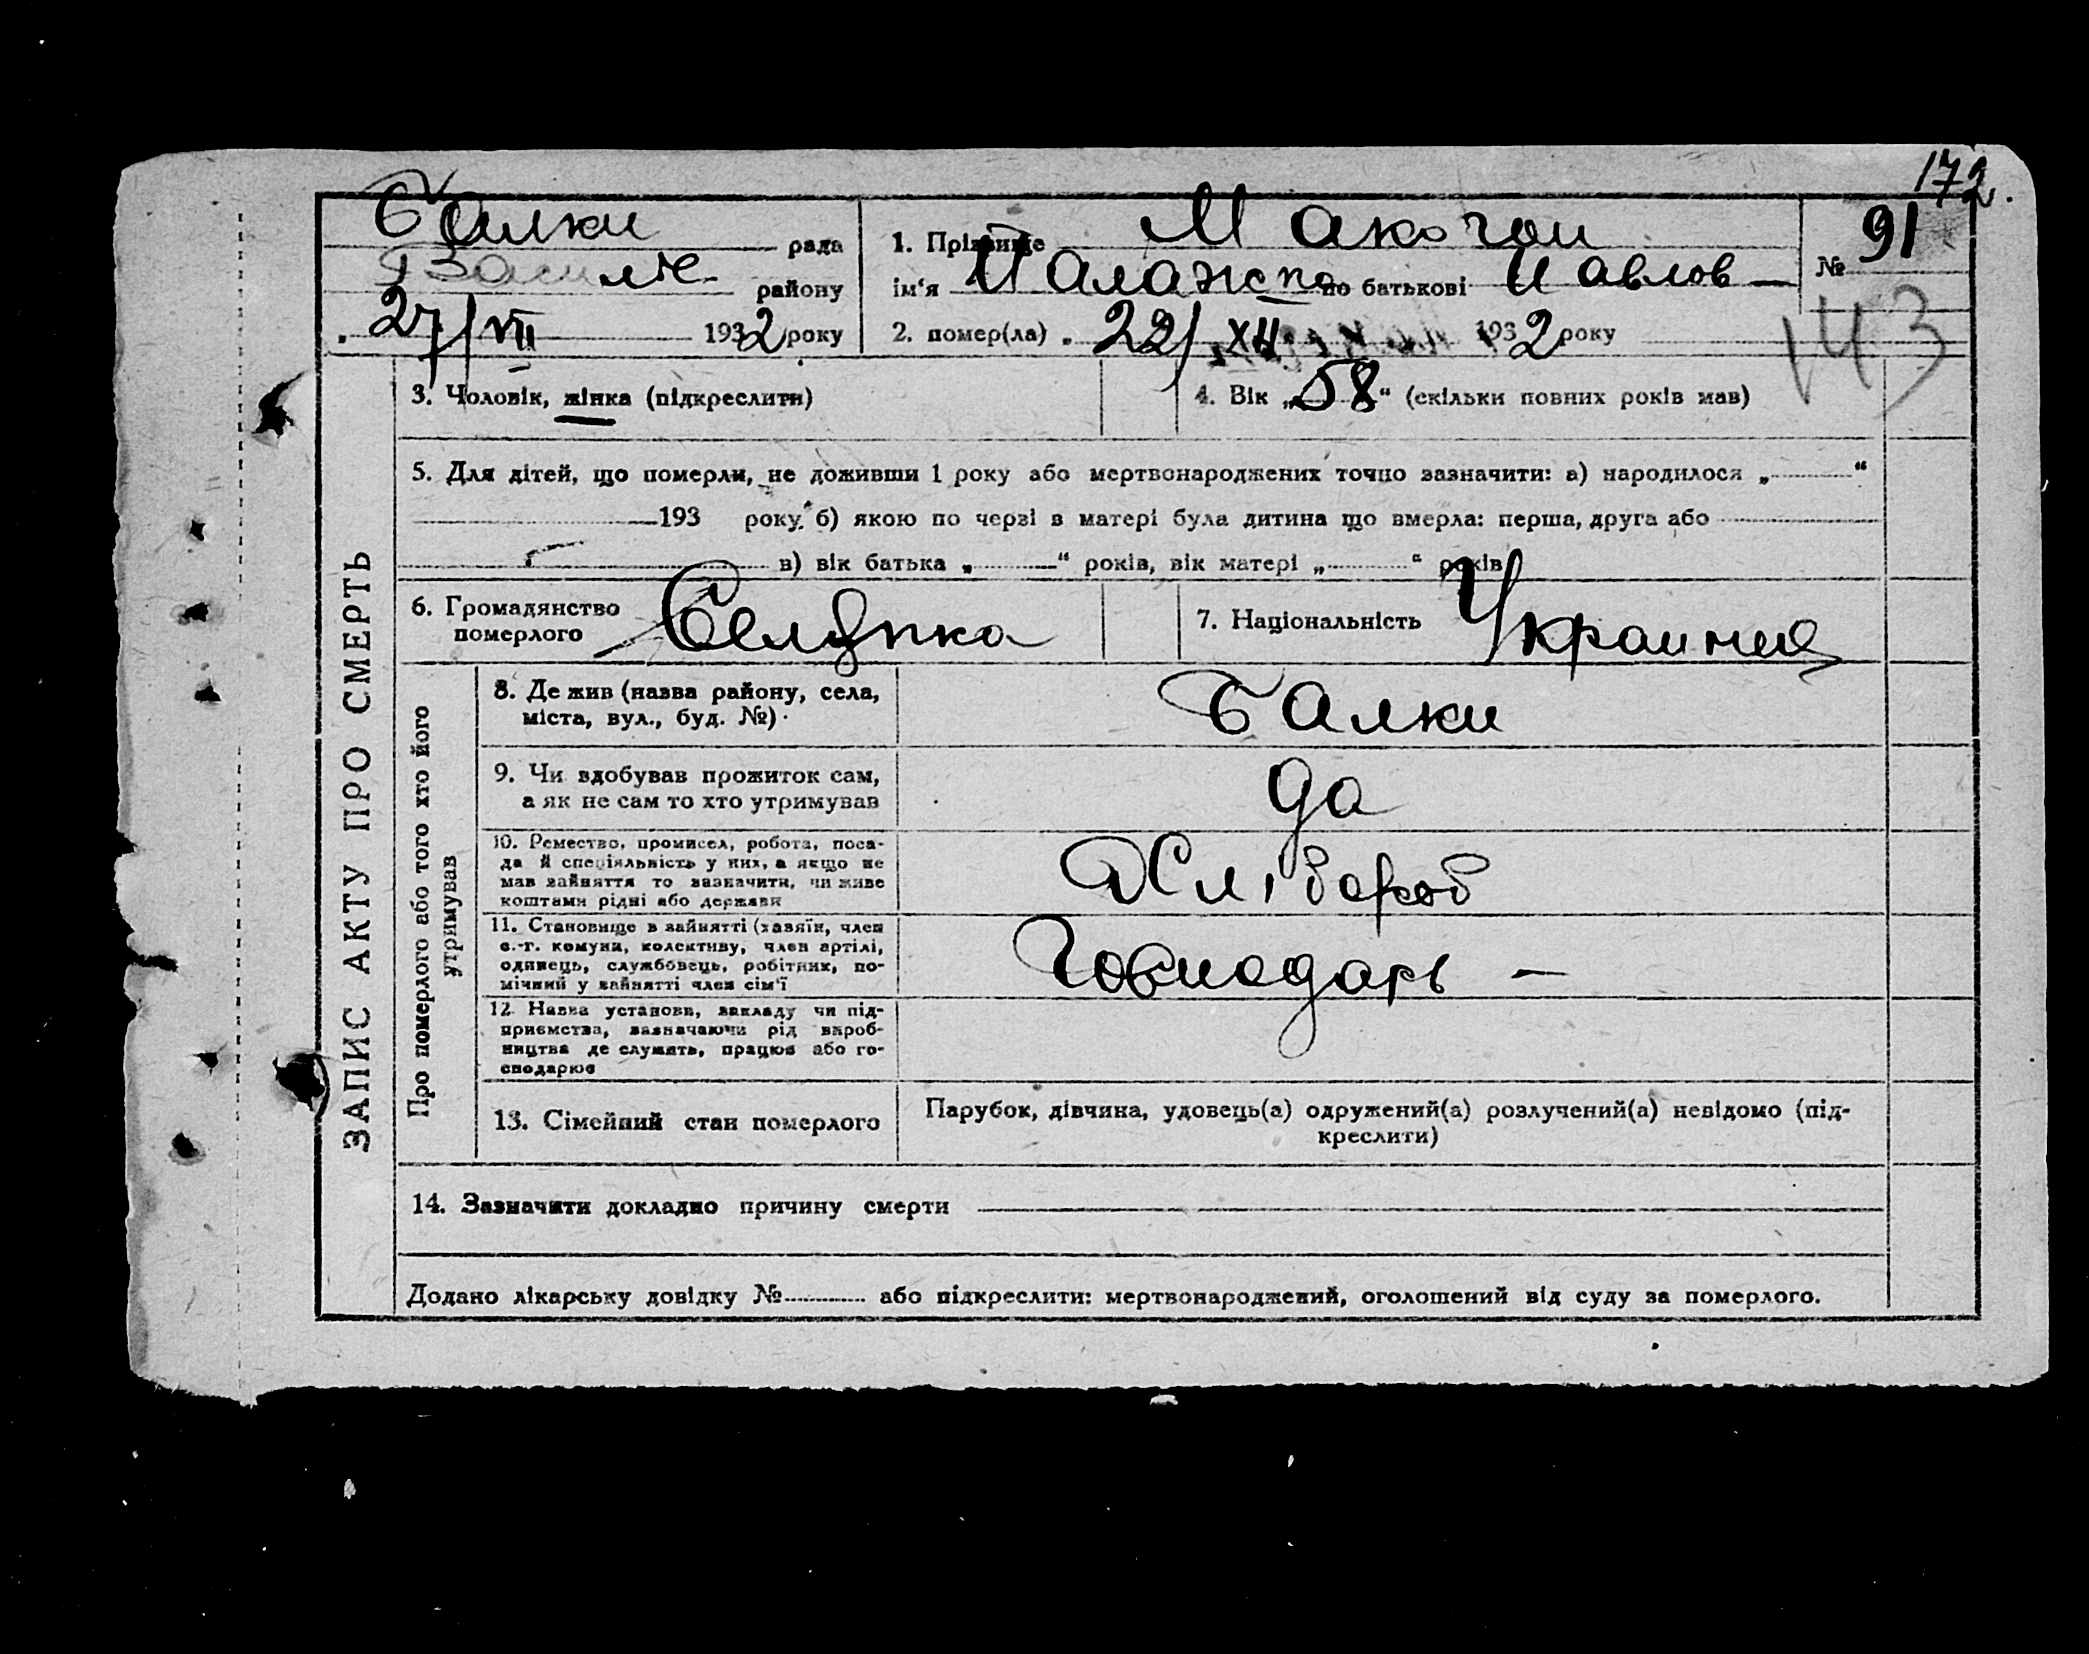 172.
Балки рада
Василк. району
27/VII 1932 року
1. Прізвище Макогон
ім'я Палажка по батькові Павлов—
2. помер(ла) „ 22/XII 1932 року
№ 91
143
ЗАПИС АКТУ ПРО СМЕРТЬ
3. Чоловік, жінка (підкреслити)
4. Вік „58“ (скільки повних років мав)
5. Для дітей, що померли, не доживши 1 року або мертвонароджених точно зазначити: а) народилося „ “
193 року б) якою по черзі в матері була дитина що вмерла: перша, друга або
в) вік батька „ “ років, вік матері „ “ років
6. Громадянство
померлого Селянка
7. Національність Украинец
Про померлого або того хто його
утримував
8. Де жив (назва району, села,
міста, вул., буд. №) Балки
9. Чи вдобував прожиток сам,
а як не сам то хто утримував да
10. Ремество, промисел, робота, поса-
да й спеціяльність у них, а якщо не
мав зайняття то зазначити, чи живе
коштами рідні або держави
Хлібороб
11. Становище в зайнятті (хазяїн, член
с.-г. комуни, колективу, член артілі,
одинець, службовець, робітник, по-
мічний у зайнятті член сім'ї
Господарь —
12. Назва установи, закладу чи під-
приємства, зазначаючи рід вироб-
ництва де служить, працює або го-
сподарює
13. Сімейний стан померлого
Парубок, дівчина, удовець(а) одружений(а) розлучений(а) невідомо (під-
креслити)
14. Зазначити докладно причину смерти
Додано лікарську довідку № або підкреслити: мертвонароджений, оголошений від суду за померлого.